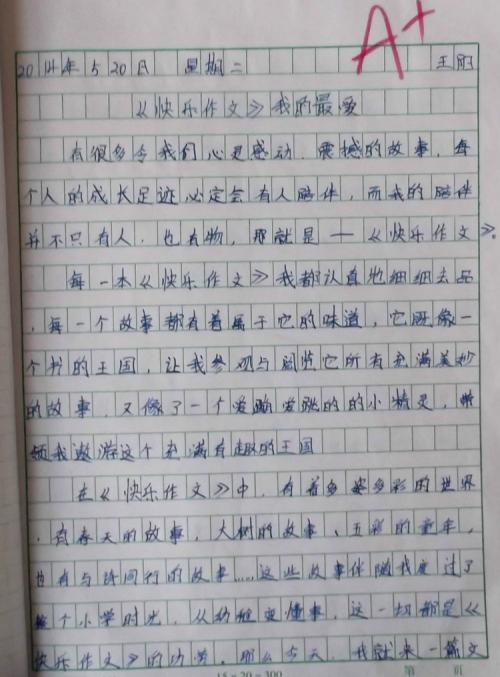 A+
2014年5月20日 星期二 王丽
《快乐作文》我的最爱
有很多令我们心灵感动、震撼的故事，每
个人的成长足迹必定会有人陪伴，而我的陪伴
并不只有人，也有物，那就是——《快乐作文》。
每一本《快乐作文》我都认真地细细去品
，每一个故事都有着属于它的味道，它既像一
个书的王国，让我参观与阅览它所有充满美妙
的故事，又像了一个爱蹦爱跳的的小精灵，带
领我遨游这个充满有趣的王国
在《快乐作文》中，有着多姿多彩的世界
，有春天的故事，大树的故事、五彩的童年，
也有与诗同行的故事……这些故事伴随我度过了
整个小学时光，从幼稚变懂事，这一切都是《
快乐作文》的功劳，那么今天，我就来一篇文
15×20=300 第 页